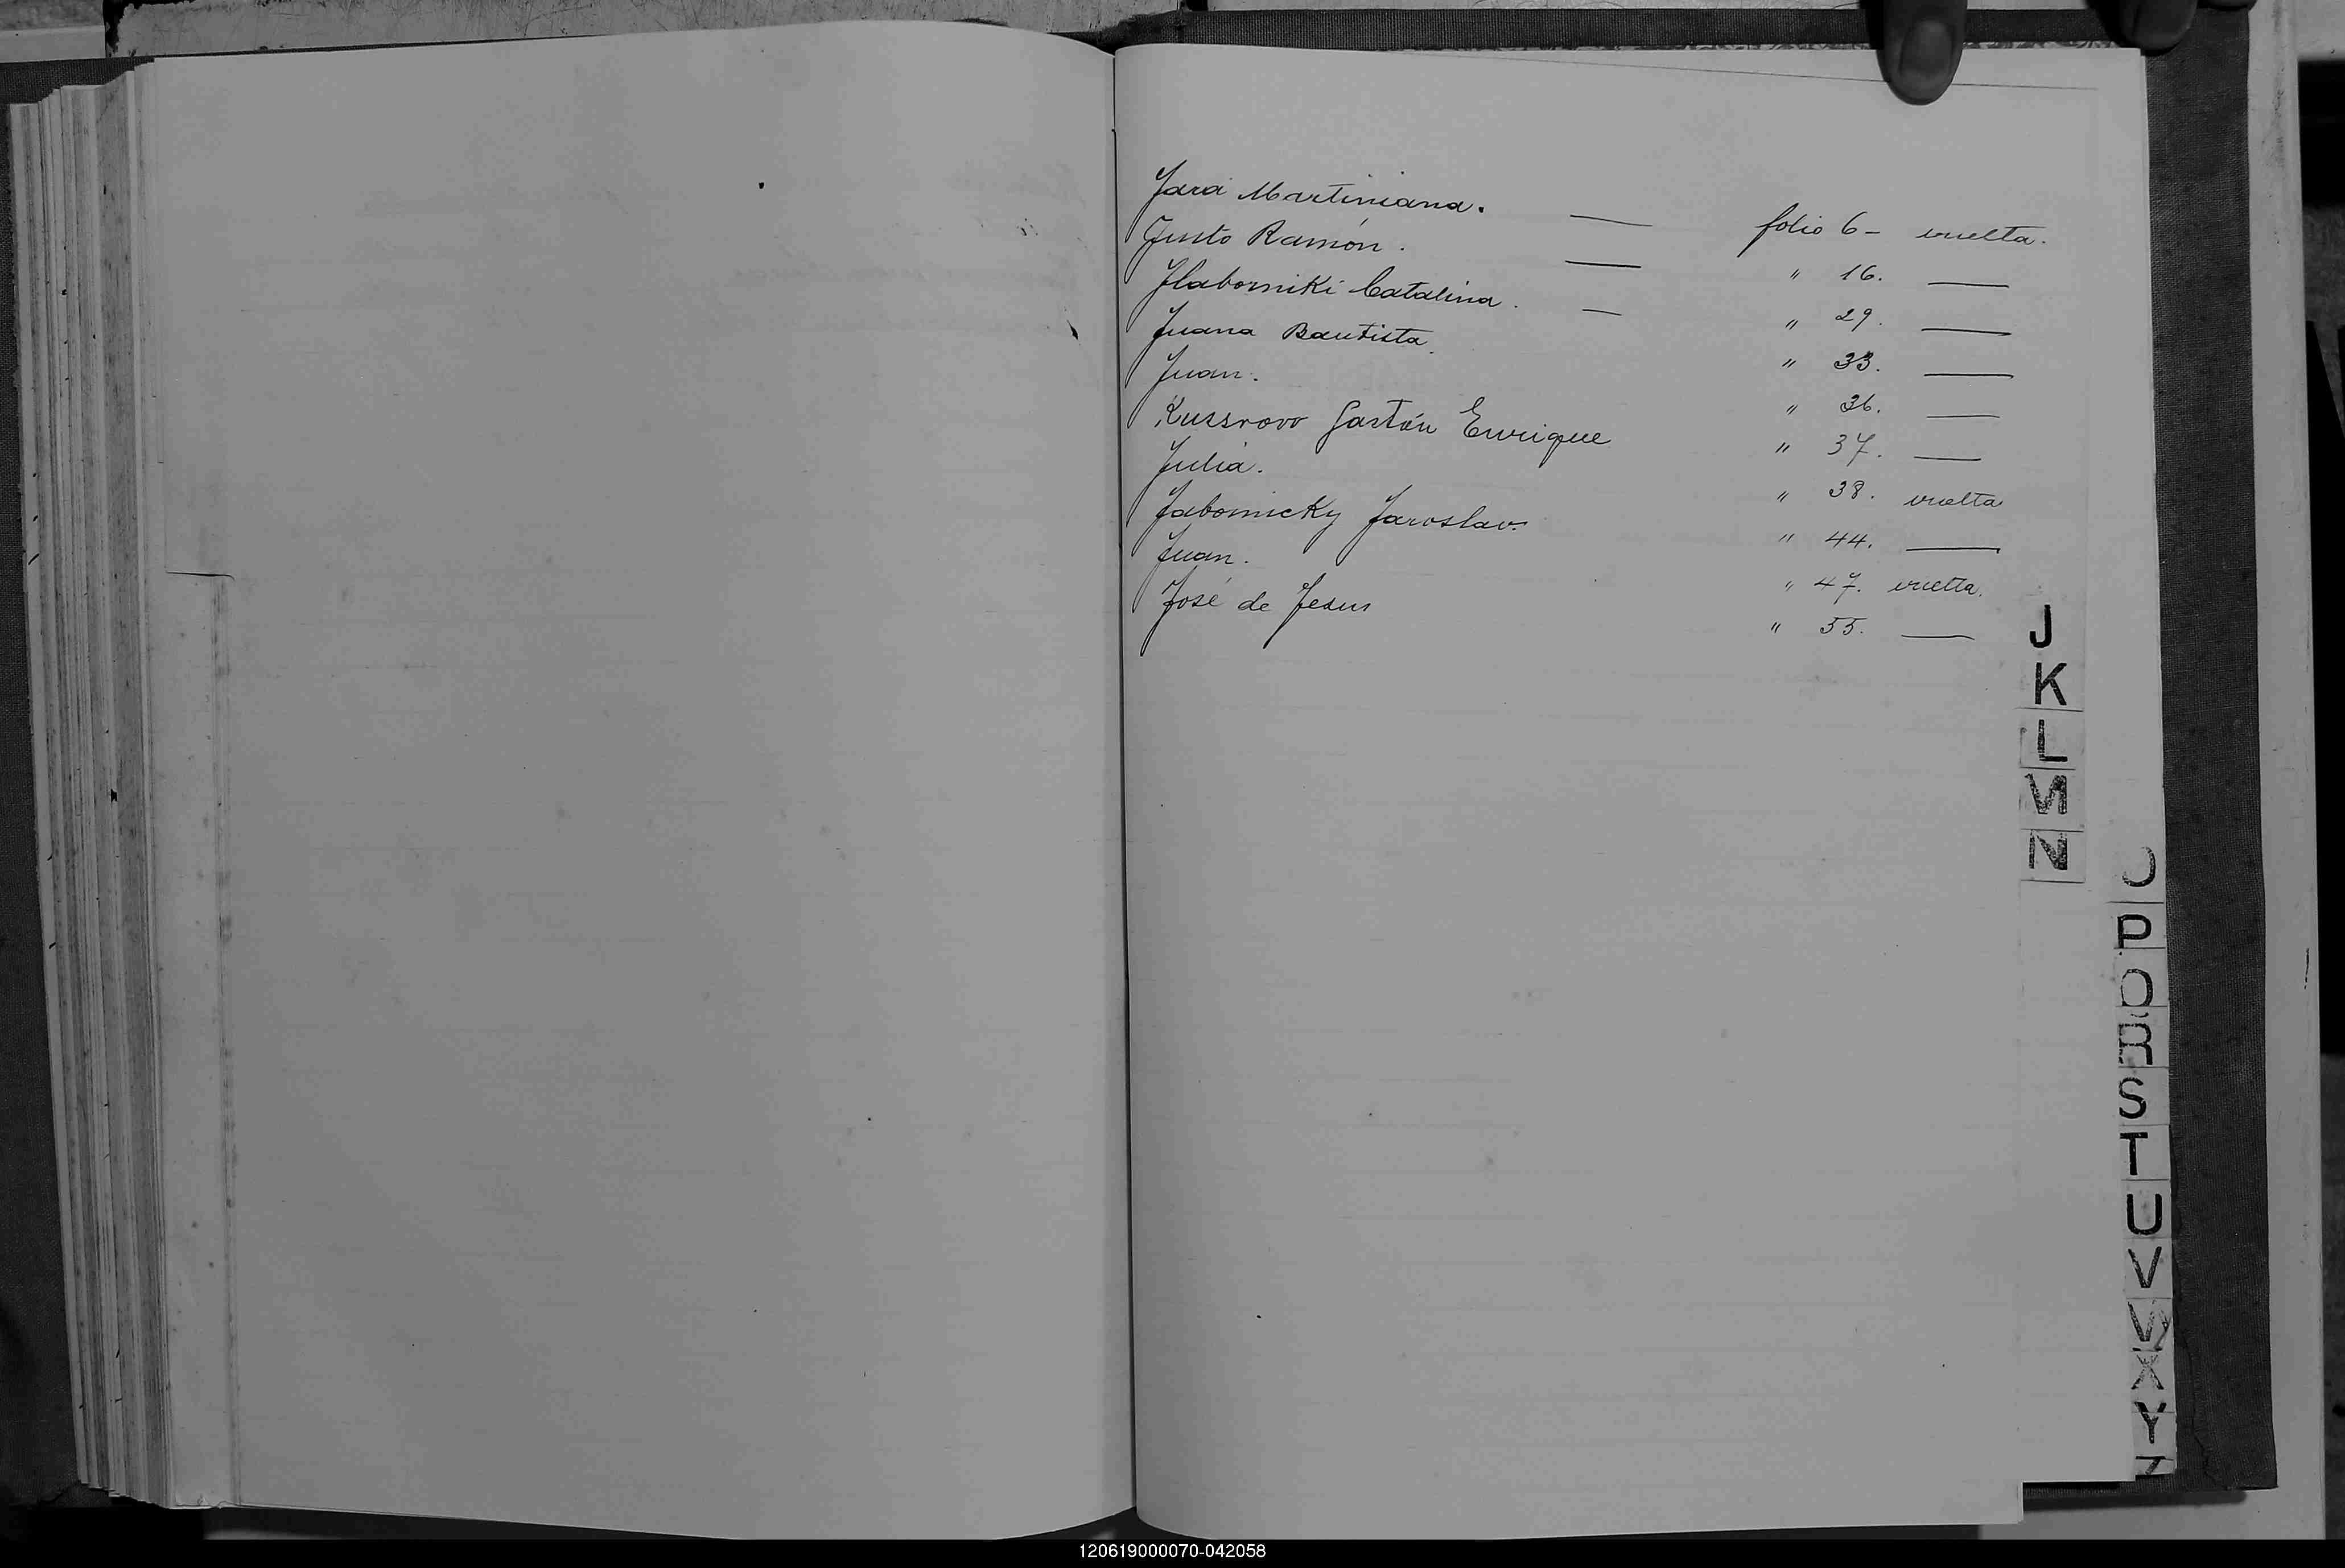 Jara Martiniana. — folio 6 - vuelta.
Justo Ramón. — " 16. —
Jlaborniki Catalina. — " 29. —
Juana Bautista. " 33. —
Juan. " 36. —
Kussrovo Gastón Enrique " 37. —
Julia. " 38. vuelta
Jabornicky Jaroslav. " 44. —
Juan. " 47. vuelta.
José de Jesus " 55. —
J
K
L
M
N
O
P
Q
R
S
T
U
V
W
X
Y
Z
120619000070-042058